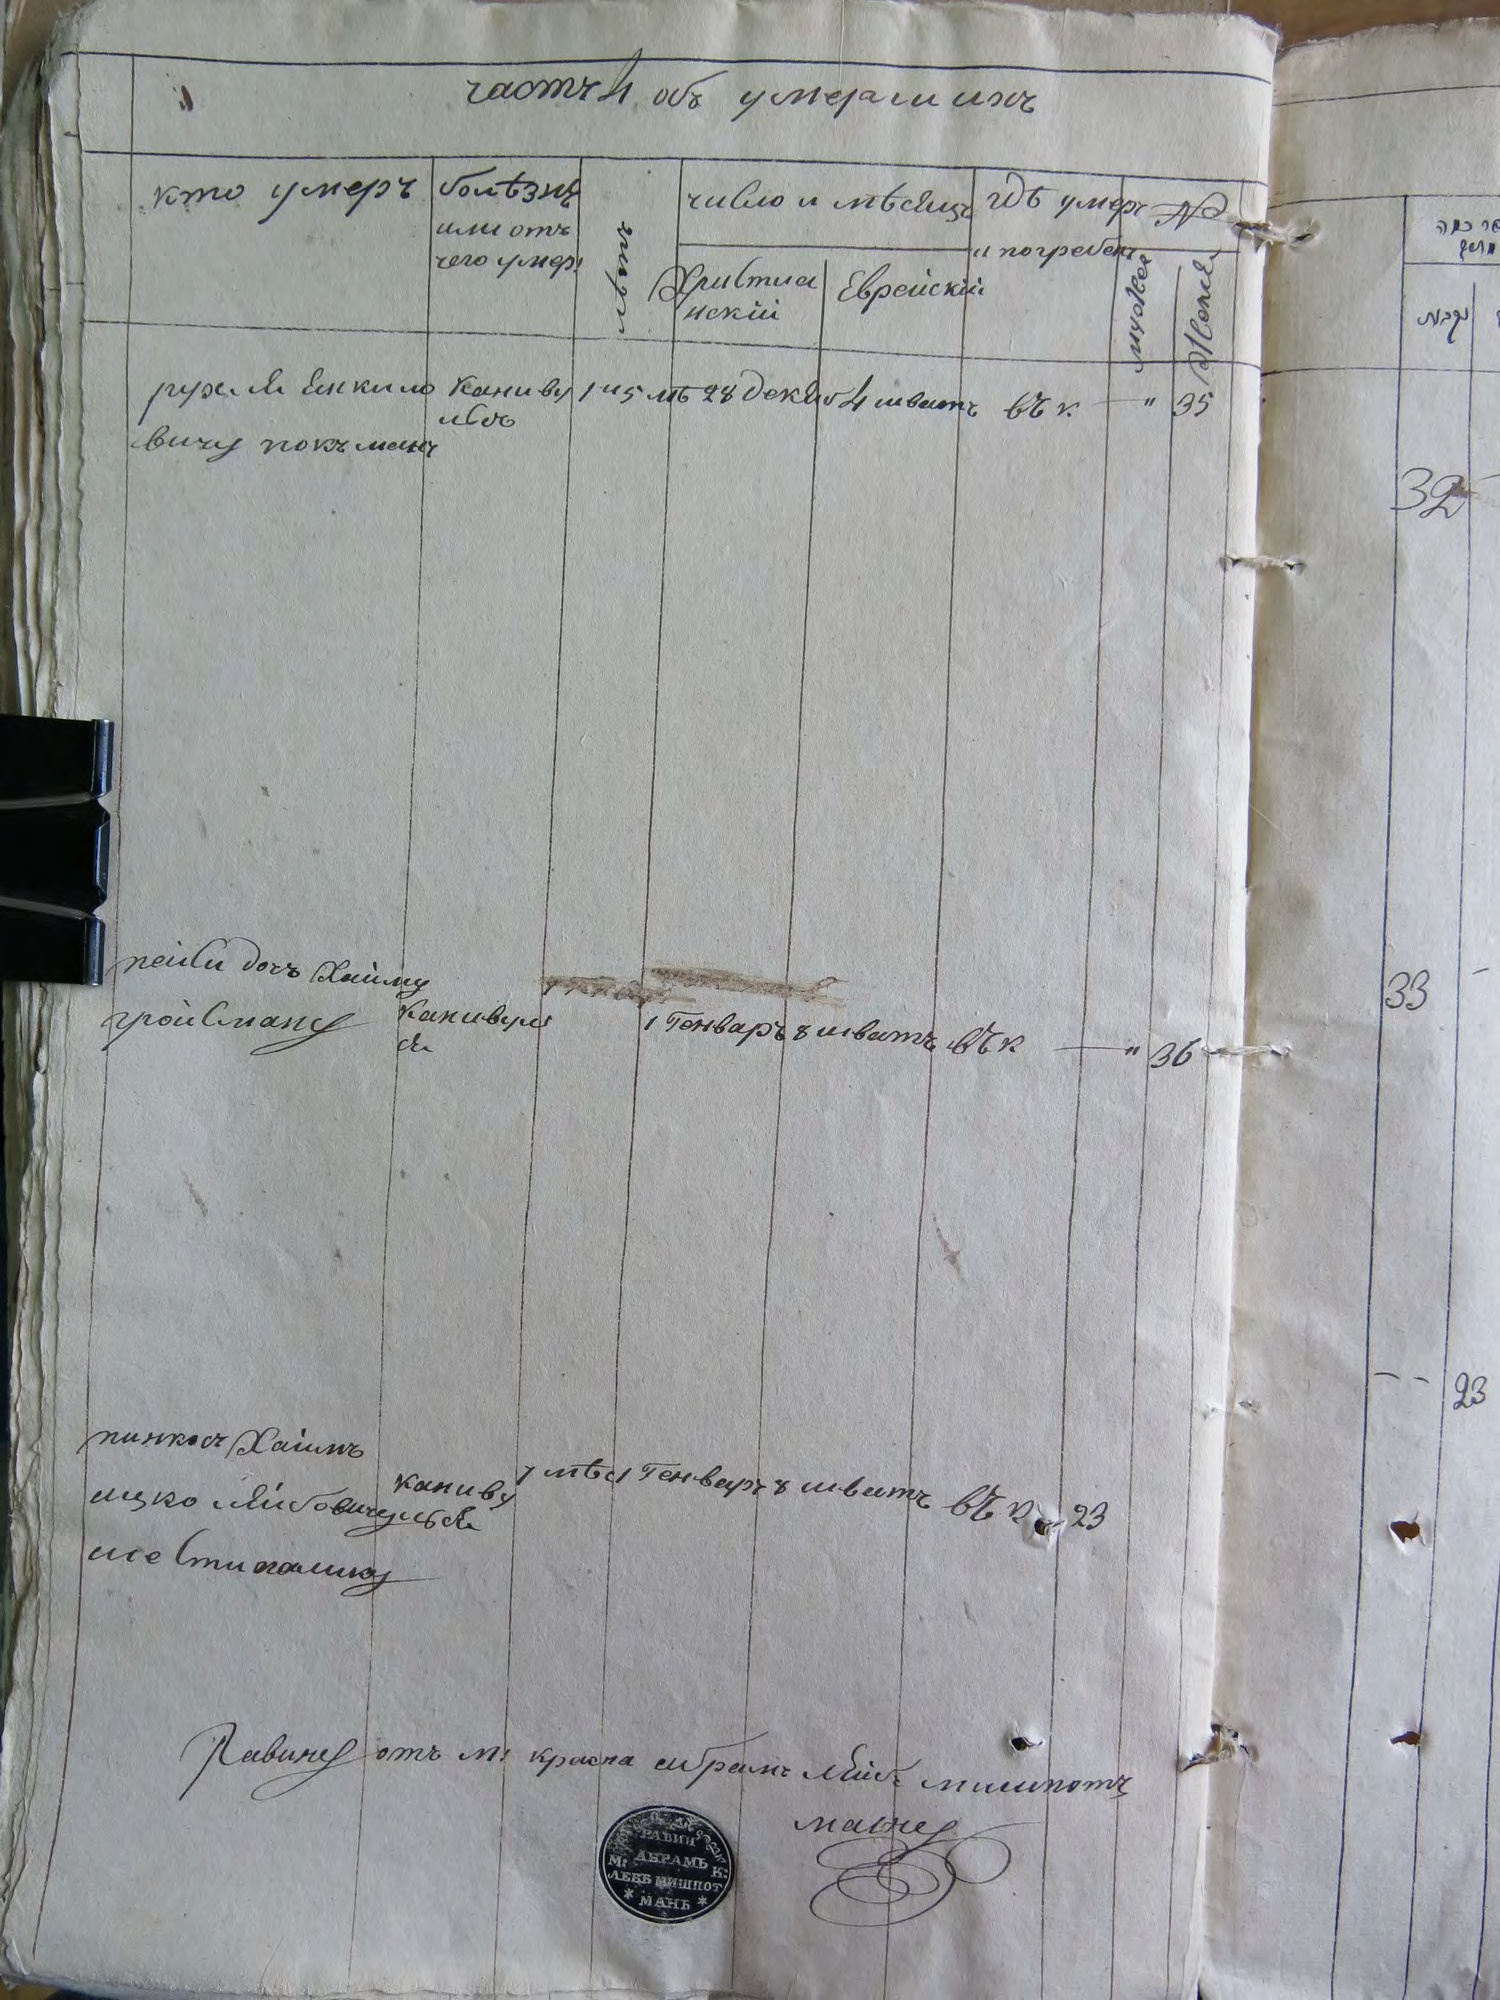 часть 4 объ умершихъ
кто умеръ
болѣзнь
или отъ
чего умеръ
лѣта
число и мѣсяцъ
Христиа
нскій
Еврейскій
гдѣ умеръ
и погребенъ
№
мужеск
Женск
рухля Енкило
вичу
Каниву
льсъ
1 и 5 мѣ
28 декаб
4 шватъ
въ к
— " 35
пейси дочь Хаиму
гройсману
канвуль
ся
1 Генваръ
8 шватъ
въ к
— " 36
пинкосъ Хаимъ
ицко лейбовичу
шестипалику
каниву
лься
1 Генваръ
8 шватъ
въ к
23
Равинъ отъ м: красна абрамъ лейбъ мишпотъ
манъ
РАВИН
М: АБРАМЪ К:
ЛЕБЪ МИШПОТ
* МАНЪ *
נקבות
32
33
-- 23